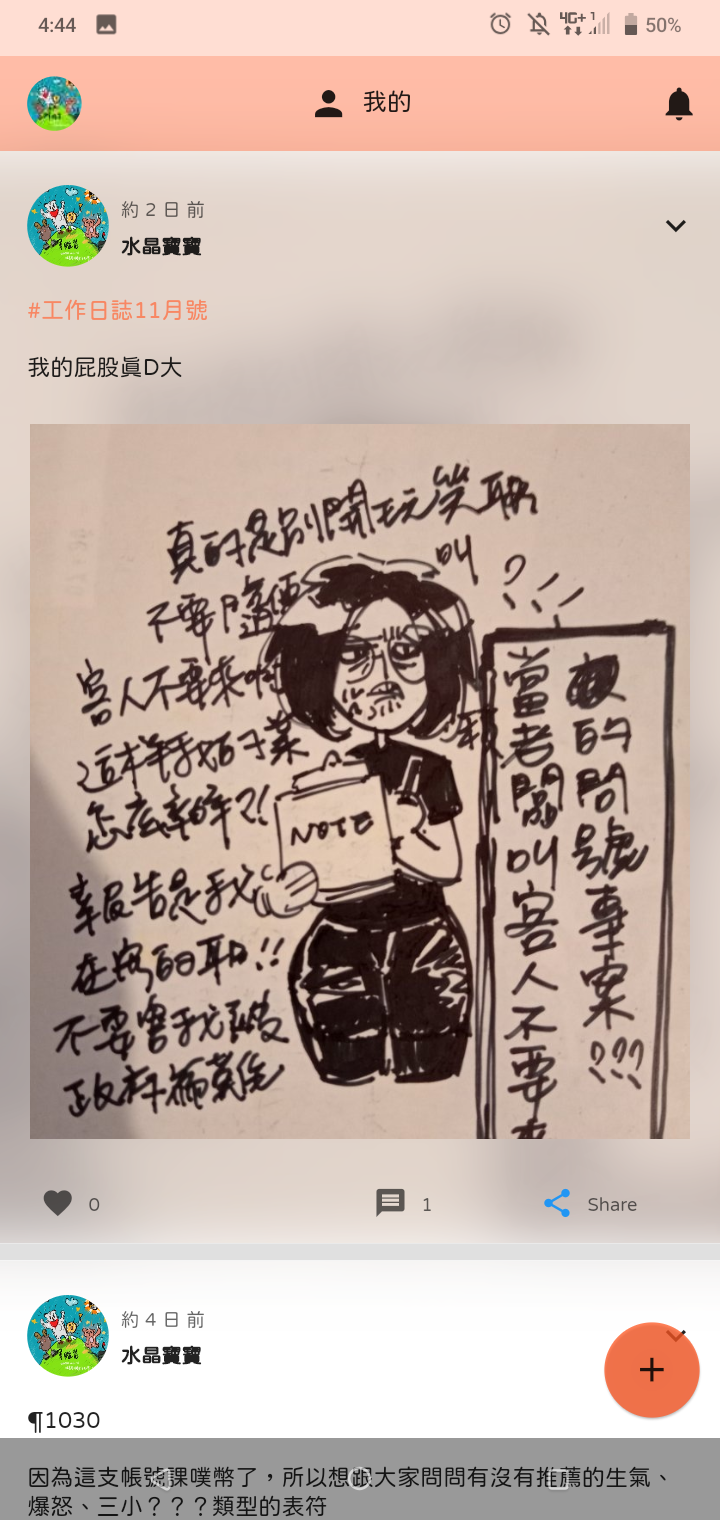 4:44
4G+ 1
50%
我的
約 2 日 前
水晶寶寶
#工作日誌11月號
我的屁股真D大
真的是別開玩笑耶
叫
不要隨便
客人不要來啊
這樣我
怎麼
NOTE
報告是我
在寫的耶!!
不要害我
?
當老闆叫客人不要來
的問號事案???
0
1
Share
約 4 日 前
水晶寶寶
¶1030
因為這支帳號課噗幣了，所以想跟大家問問有沒有推薦的生氣、
爆怒、三小？？？類型的表符